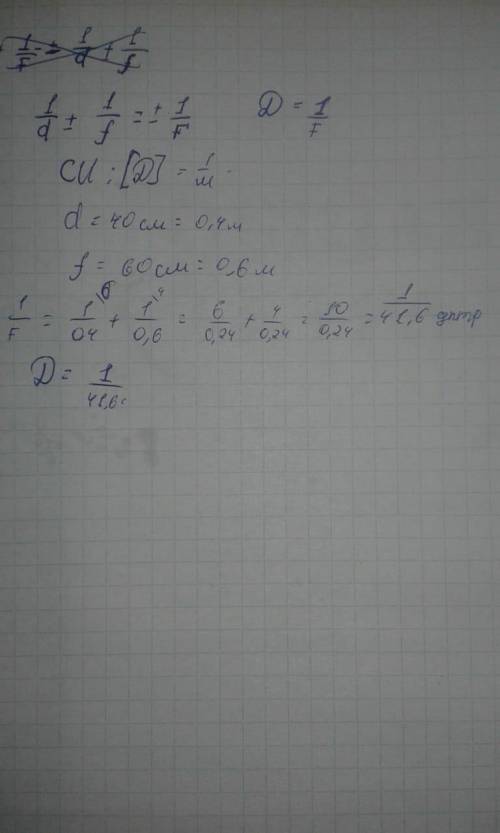 1/F = 1/d + 1/f
1/d ± 1/f = ± 1/F D = 1/F
СИ: [D] = 1/м
d = 40 см = 0,4 м
f = 60 см = 0,6 м
1/F = 1\6/04 + 1\4/0,6 = 6/0,24 + 4/0,24 = 10/0,24 = 1/41,6 дптр
D = 1/41,6